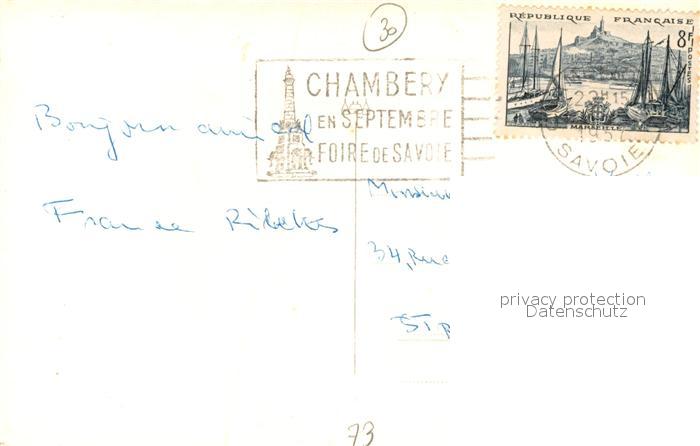 30
RÉPUBLIQUE FRANÇAISE
8F
POSTES
MARSEILLE
CHAMBERY
EN SEPTEMBRE
FOIRE DE SAVOIE
1957
SAVOIE
Bonjour amical
France
Monsieur
34, Rue
privacy protection
Datenschutz
73